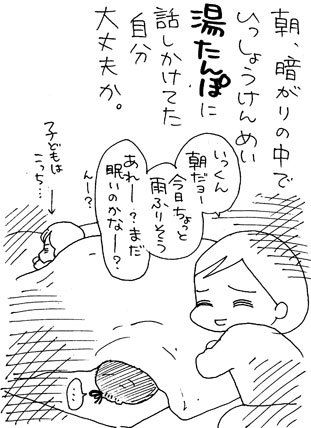 朝、暗がりの中で
いっしょうけんめい
湯たんぽに
話しかけてた
自分
大丈夫か。
いっくん
朝だョー
今日ちょっと
雨ふりそう
あれー？まだ
眠いのかなー？
んー？
子どもは
こっち…
…